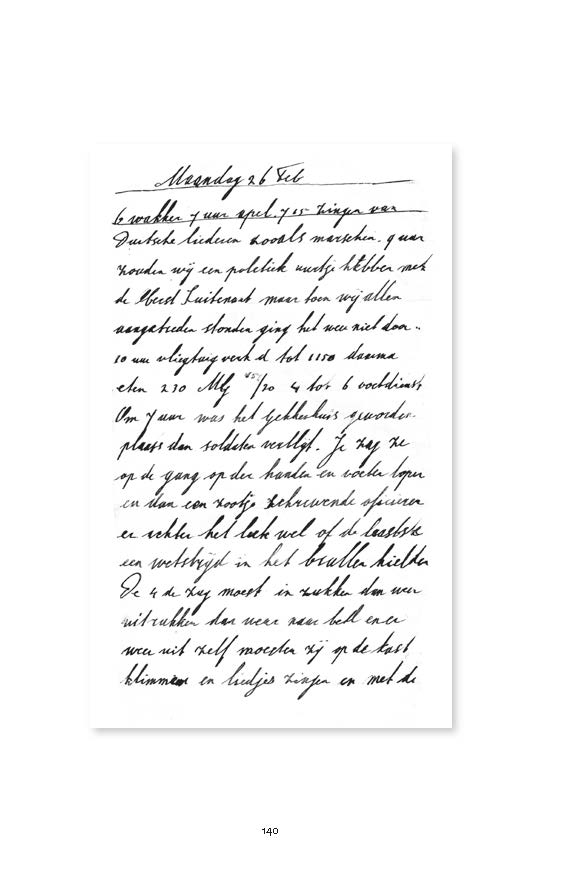 Maandag 26 Feb
6 wakker 7 uur apel. 7 15 zingen van
Duitsche liederen zooals marschen. 9 uur
zouden wij een politiek uurtje hebben met
de Luitenant maar toen wij allen
aangetreden stonden ging het weer niet door.
10 uur vliegtuigwerk d tot 1150 daarna
eten 2 30 Mg /20 4 tot 6 voetdienst
Om 7 uur was het gekkenhuis geworden
plaats dan soldaten verblijf. Je zag ze
op de gang op der handen en voeten lopen
en dan een zootje schreuwende ofsieren
er achter het leek wel of de laatste
een wetstrijd in het brullen hielden
De 4 de zug moest in zukken dan weer
uitrukken dan weer naar bed en er
weer uit zelf moesten zij op de kast
klimmen en liedjes zingen en met de
140